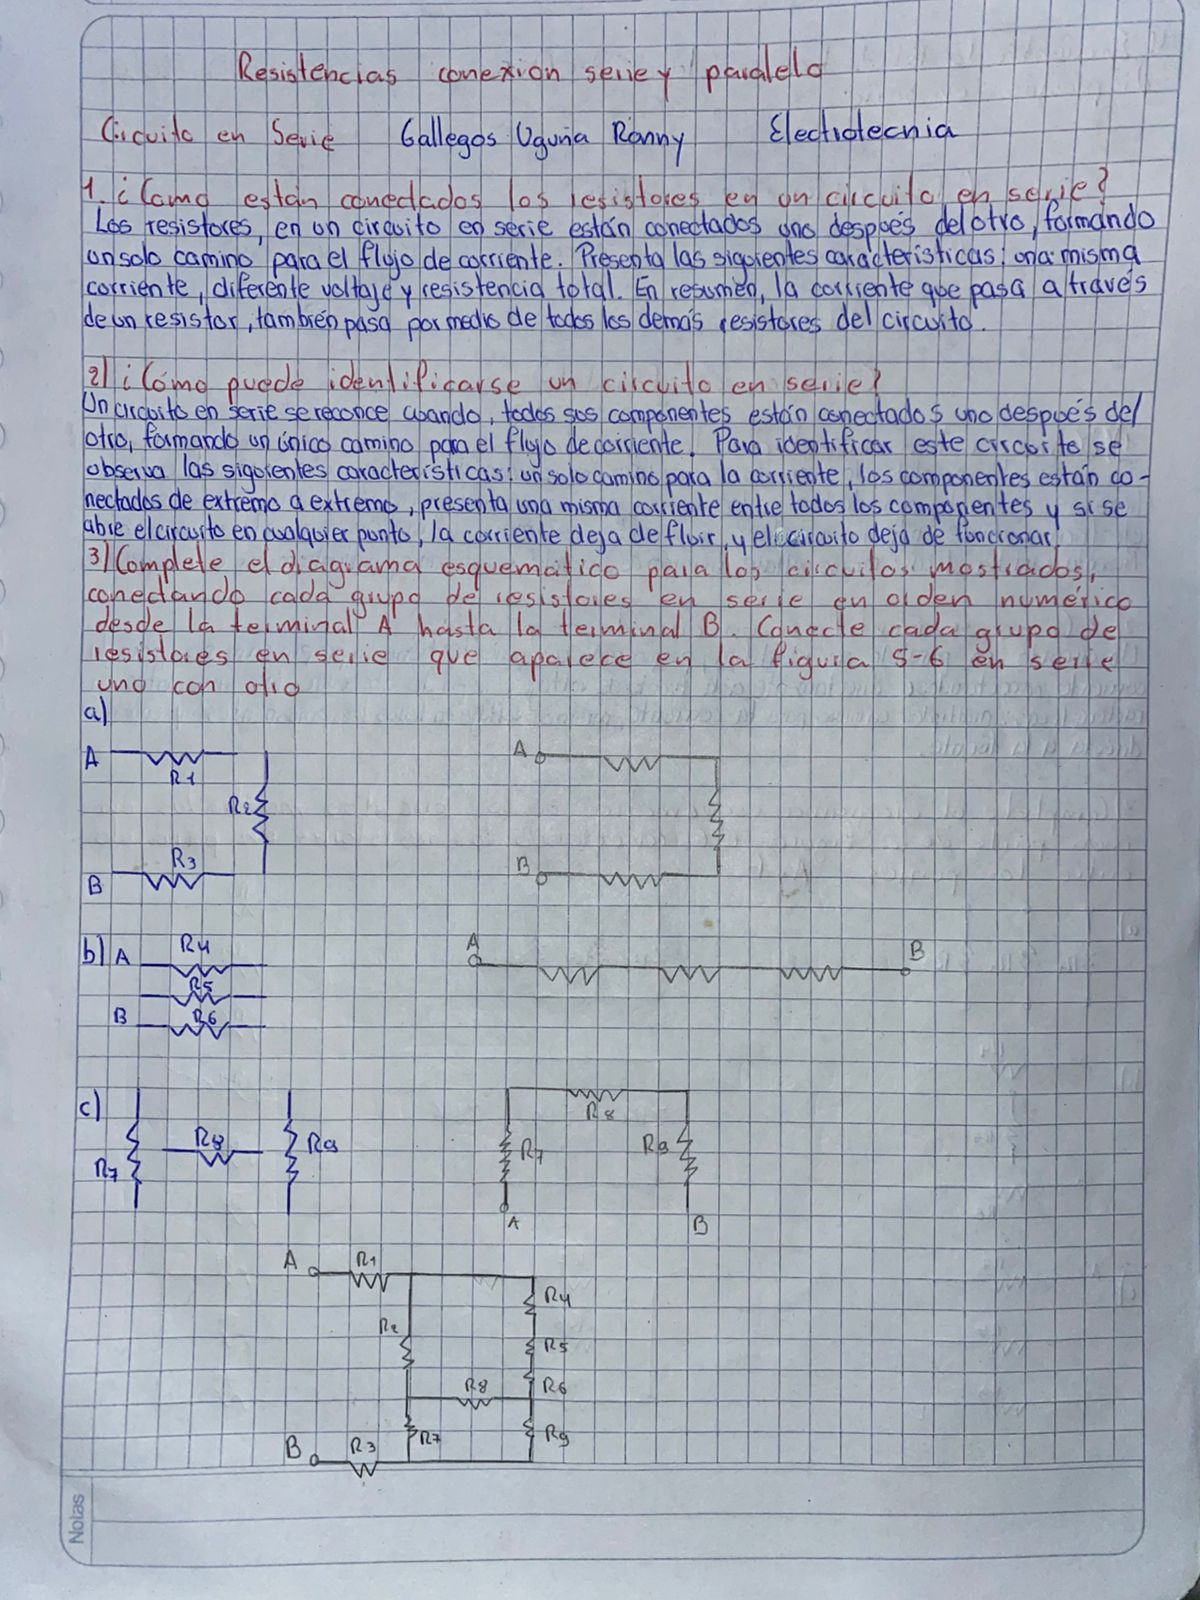 Resistencias conexion serie y paralelo
Circuito en Serie Gallegos Uguña Ronny Electrotecnia
1. ¿Como están conectados los resistores en un circuito en serie?
Los resistores, en un circuito en serie están conectados uno después del otro, formando
un solo camino para el flujo de corriente. Presenta las siguientes características: una misma
corriente, diferente voltaje y resistencia total. En resumen, la corriente que pasa a través
de un resistor, también pasa por medio de todos los demás resistores del circuito.
2) ¿Cómo puede identificarse un circuito en serie?
Un circuito en serie se reconce cuando, todos sus componentes están conectados uno después del
otro, formando un único camino para el flujo de corriente. Para identificar este circuito se
observa las siguientes características: un solo camino para la corriente, los componentes están co-
nectados de extremo a extremo, presenta una misma corriente entre todos los componentes y si se
abre el circuito en cualquier punto, la corriente deja de fluir, y el circuito deja de funcionar
3) Complete el diagrama esquemático para los circuitos mostrados,
conectando cada grupo de resistores en serie en orden numérico
desde la terminal A hasta la terminal B. Conecte cada grupo de
resistores en serie que aparece en la figura 5-6 en serie
uno con otro
a)
A R1 A
R2
R3
B B
b) A R4 A B
R5
B R6
c)
R7 R8 R9 R7 R8 R9
A B
A R1
R4
R2
R5
R8 R6
B R3 R7 R9
Notas